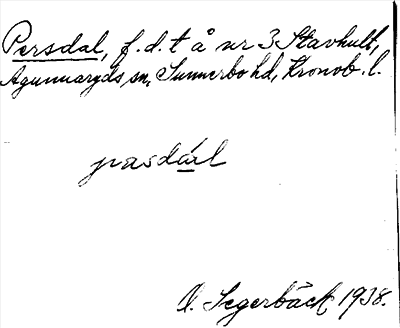 Persdal, f.d.t å nr 3 Stavhult,
Agunnaryds sn, Sunnerbo hd, Kronob. l.
pæsdál
A. Segerbäck 1938.